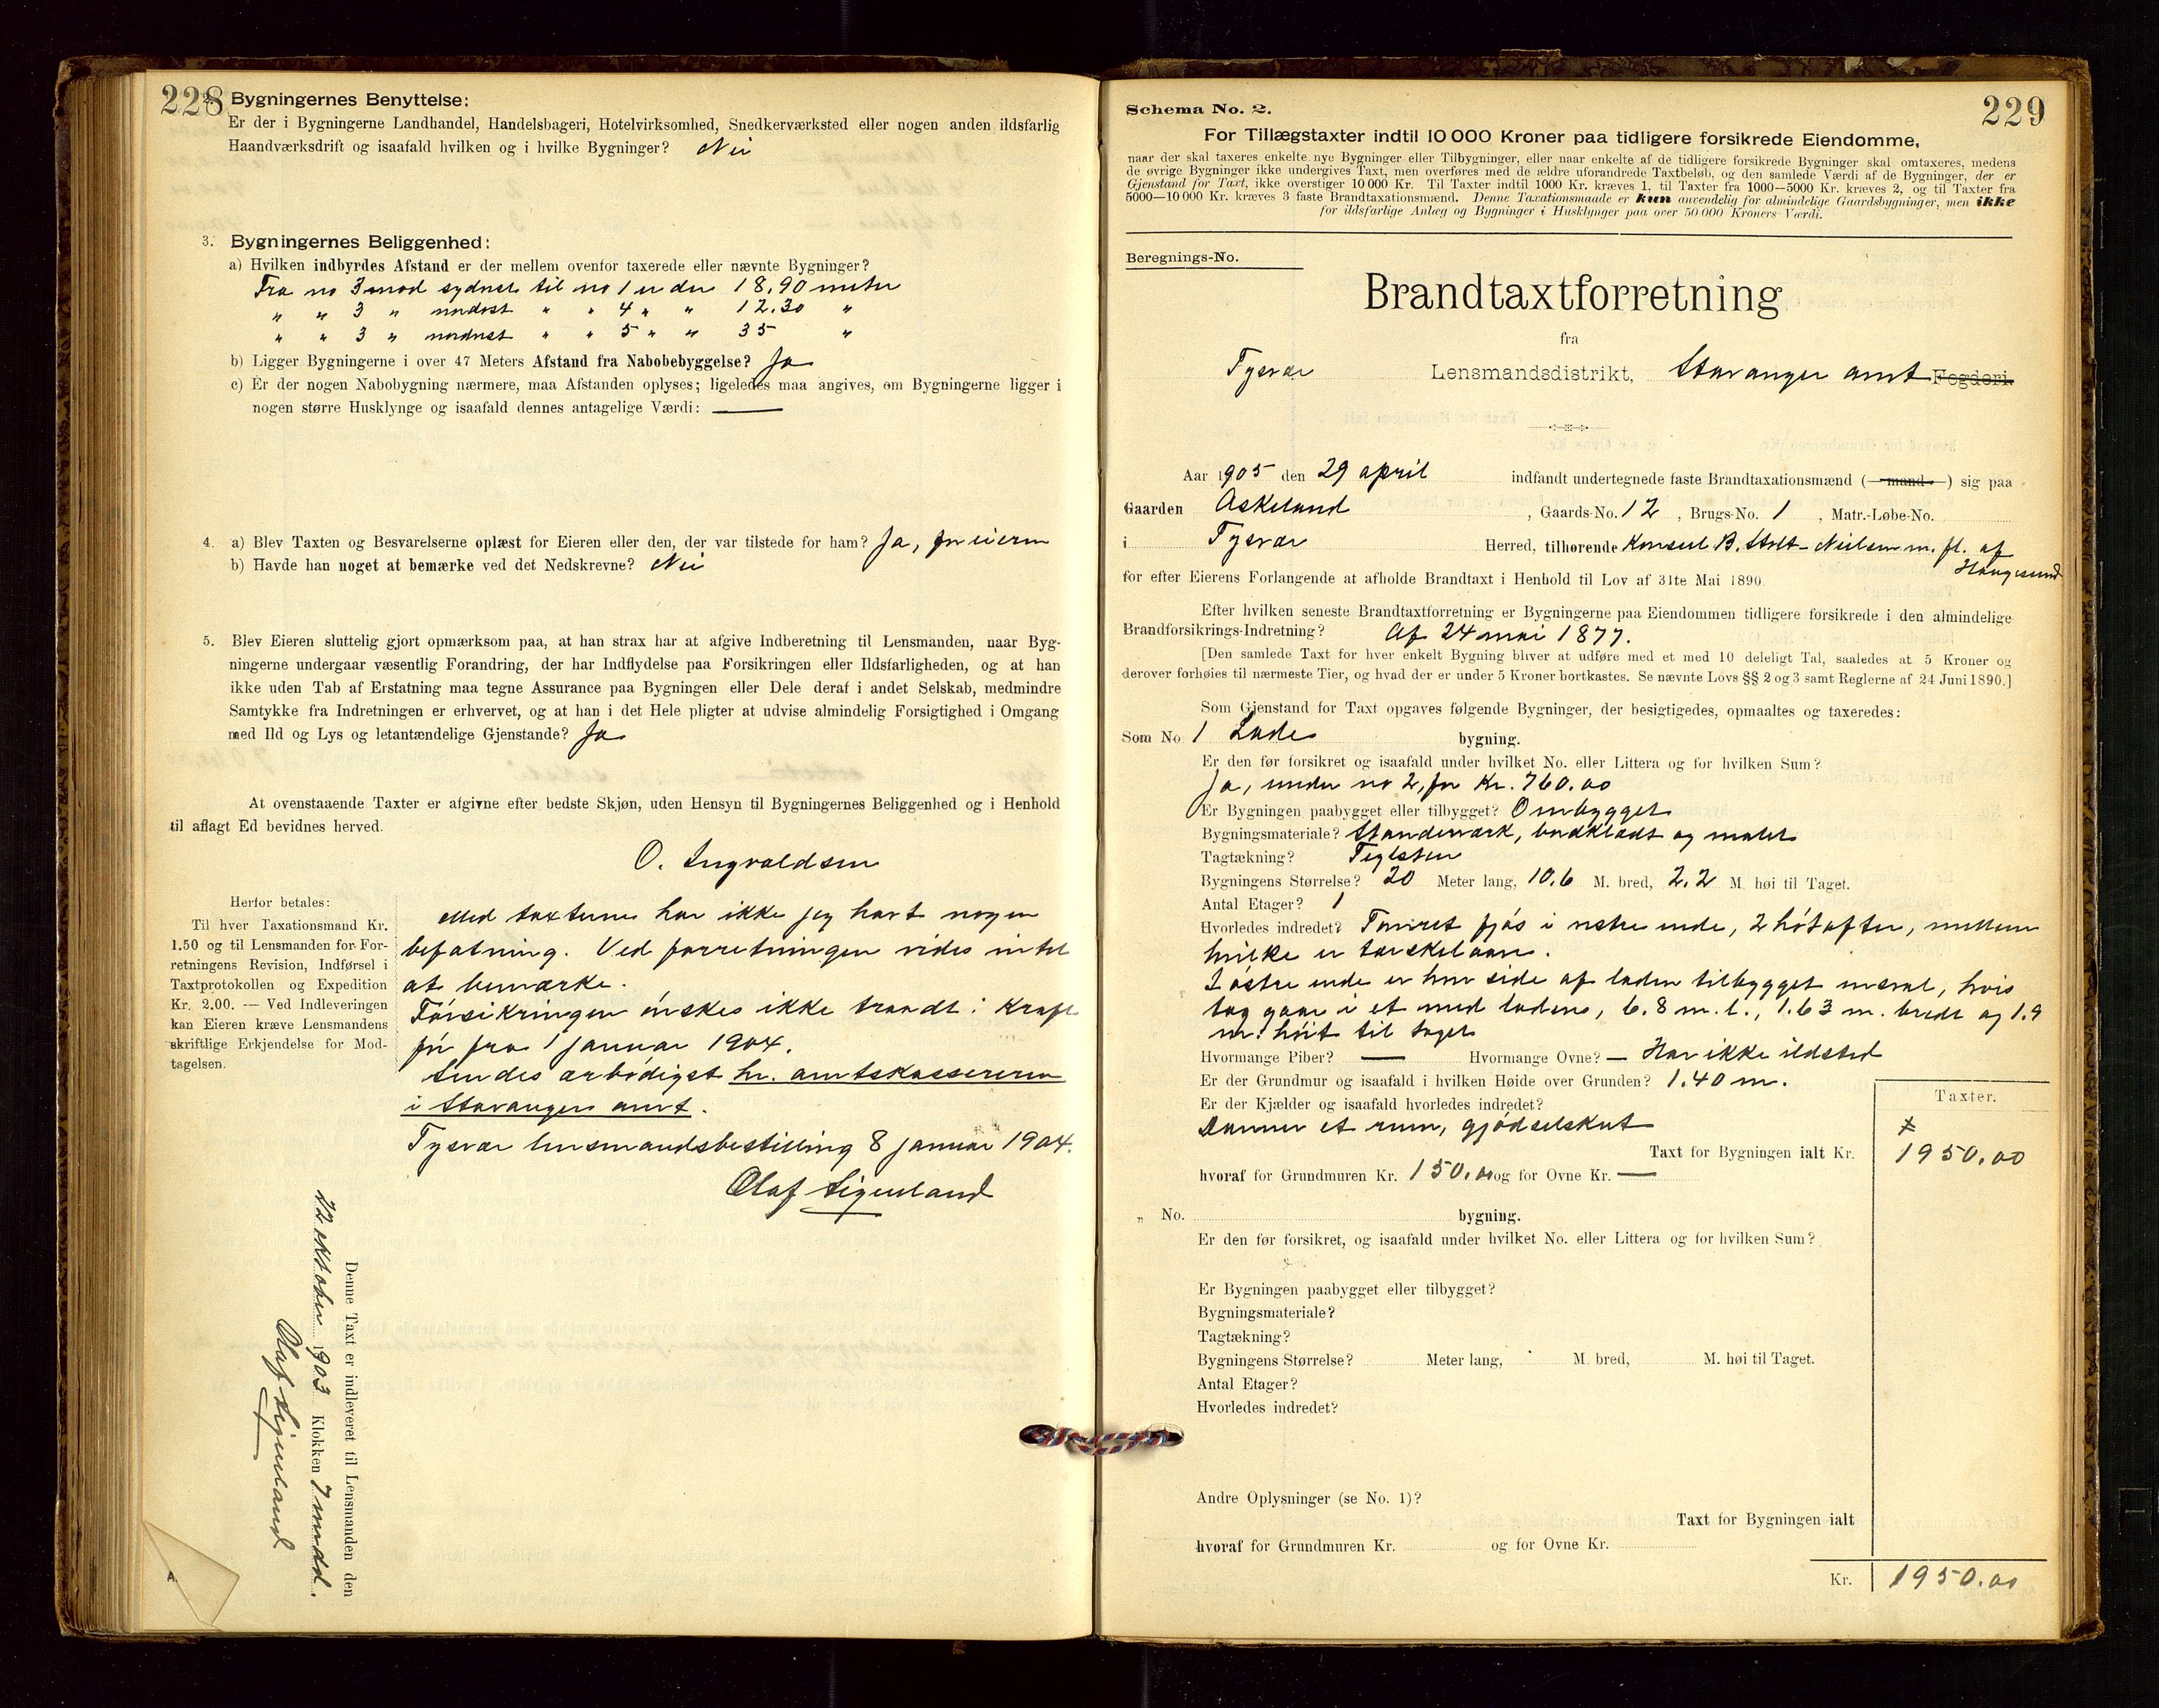 228
2. Bygningernes Benyttelse:
Er der i Bygningerne Landhandel, Handelsbageri, Hotelvirksomhed, Snedkerværksted eller nogen anden ildsfarlig
Haandværksdrift og isaafald hvilken og i hvilke Bygninger? Nei
3. Bygningernes Beliggenhed:
a) Hvilken indbyrdes Afstand er der mellem ovenfor taxerede eller nævnte Bygninger?
Fra no 3 mod sydvest til no 1 er der 18,90 meter
" " 3 " " " 4 " " 12.30 "
" " 3 " nordvest " " 5 " " 35 "
b) Ligger Bygningerne i over 47 Meters Afstand fra Nabobebyggelse? Ja
c) Er der nogen Nabobygning nærmere, maa Afstanden oplyses; ligeledes maa angives, om Bygningerne ligger i
nogen større Husklynge og isaafald dennes antagelige Værdi: —
4. a) Blev Taxten og Besvarelserne oplæst for Eieren eller den, der var tilstede for ham? Ja, for eieren
b) Havde han noget at bemærke ved det Nedskrevne? Nei
5. Blev Eieren sluttelig gjort opmærksom paa, at han strax har at afgive Indberetning til Lensmanden, naar Byg-
ningerne undergaar væsentlig Forandring, der har Indflydelse paa Forsikringen eller Ildsfarligheden, og at han
ikke uden Tab af Erstatning maa tegne Assurance paa Bygningen eller Dele deraf i andet Selskab, medmindre
Samtykke fra Indretningen er erhvervet, og at han i det Hele pligter at udvise almindelig Forsigtighed i Omgang
med Ild og Lys og letantændelige Gjenstande? Ja
At ovenstaaende Taxter er afgivne efter bedste Skjøn, uden Hensyn til Bygningernes Beliggenhed og i Henhold
til aflagt Ed bevidnes herved.
O. Ingvaldsen
Herfor betales:
Til hver Taxationsmand Kr.
1.50 og til Lensmanden for For-
retningens Revision, Indførsel i
Taxtprotokollen og Expedition
Kr. 2.00. — Ved Indleveringen
kan Eieren kræve Lensmandens
skriftlige Erkjendelse for Mod-
tagelsen.
Med taxterne har ikke jeg havt nogen
befatning. Ved forretningen vides intet
at bemærke.
Forsikringen ønskes ikke traadt i kraft
før fra 1 januar 1904.
Sendes ærbødigst hr. amtskassereren
i Stavanger amt.
Tysvær lensmandsbestilling 8 januar 1904.
Olaf
Denne Taxt er indleveret til Lensmanden den
22 oktober 1903 Klokken 7 midd.
Olaf
229
Schema No. 2.
For Tillægstaxter indtil 10 000 Kroner paa tidligere forsikrede Eiendomme,
naar der skal taxeres enkelte nye Bygninger eller Tilbygninger, eller naar enkelte af de tidligere forsikrede Bygninger skal omtaxeres, medens
de øvrige Bygninger ikke undergives Taxt, men overføres med de ældre uforandrede Taxtbeløb, og den samlede Værdi af de Bygninger, der er
Gjenstand for Taxt, ikke overstiger 10 000 Kr. Til Taxter indtil 1000 Kr. kræves 1, til Taxter fra 1000—5000 Kr. kræves 2, og til Taxter fra
5000—10 000 Kr. kræves 3 faste Brandtaxationsmænd. Denne Taxationsmaade er kun anvendelig for almindelige Gaardsbygninger, men ikke
for ildsfarlige Anlæg og Bygninger i Husklynger paa over 50 000 Kroners Værdi.
Beregnings-No.
Brandtaxtforretning
fra
Tysvær Lensmandsdistrikt, Stavanger amt Fogderi.
Aar 1905 den 29 april indfandt undertegnede faste Brandtaxationsmænd (—mand—) sig paa
Gaarden Askeland , Gaards-No. 12 , Brugs-No. 1 , Matr.-Løbe-No.
i Tysvær Herred, tilhørende Konsul B. Stolt-Nielsen m. fl. af
Haugesund
for efter Eierens Forlangende at afholde Brandtaxt i Henhold til Lov af 31te Mai 1890.
Efter hvilken seneste Brandtaxtforretning er Bygningerne paa Eiendommen tidligere forsikrede i den almindelige
Brandforsikrings-Indretning? Af 24 mai 1877.
[Den samlede Taxt for hver enkelt Bygning bliver at udføre med et med 10 deleligt Tal, saaledes at 5 Kroner og
derover forhøies til nærmeste Tier, og hvad der er under 5 Kroner bortkastes. Se nævnte Lovs §§ 2 og 3 samt Reglerne af 24 Juni 1890.]
Som Gjenstand for Taxt opgaves følgende Bygninger, der besigtigedes, opmaaltes og taxeredes:
Som No 1 Lade bygning.
Er den før forsikret og isaafald under hvilket No. eller Littera og for hvilken Sum?
Ja, under no 2, for Kr. 760.00
Er Bygningen paabygget eller tilbygget? Ombygget
Bygningsmateriale? Standeværk, bordklædt og malet
Tagtækning? Teglsten
Bygningens Størrelse? 20 Meter lang, 10.6 M. bred, 2.2 M. høi til Taget.
Antal Etager? 1
Hvorledes indredet? Forøvret fjøs i vestre ende, 2 høtafter, mellem
hvilke er tærskelaave.
I østre ende er hver side af laden tilbygget insval, hvis
tag gaar i et med ladens, 6.8 m. l., 1.63 m. bredt og 1.9
m. høit til taget
Hvormange Piber? — Hvormange Ovne? — Har ikke ildsted
Er der Grundmur og isaafald i hvilken Høide over Grunden? 1.40 m.
Er der Kjælder og isaafald hvorledes indredet?
Danner et rum, gjødselskut
Taxter.
Taxt for Bygningen ialt Kr. 1950.00
hvoraf for Grundmuren Kr. 150.00 og for Ovne Kr. —
„ No. bygning.
Er den før forsikret, og isaafald under hvilket No. eller Littera og for hvilken Sum?
Er Bygningen paabygget eller tilbygget?
Bygningsmateriale?
Tagtækning?
Bygningens Størrelse? Meter lang, M. bred, M. høi til Taget.
Antal Etager?
Hvorledes indredet?
Andre Oplysninger (se No. 1)?
Taxt for Bygningen ialt
hvoraf for Grundmuren Kr. og for Ovne Kr.
Kr. 1950.00